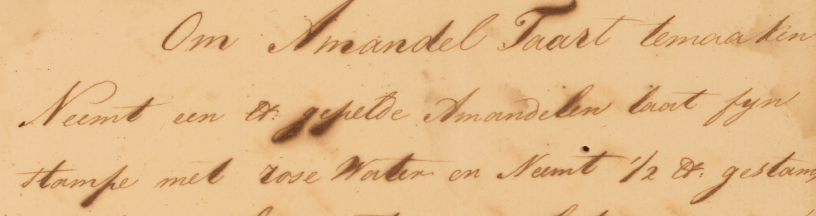 Om Amandel Taart temaaken
Neemt een ℔: gepelde Amandelen laat fyn
stampe met rose Water en Neemt 1/2 ℔: gestam